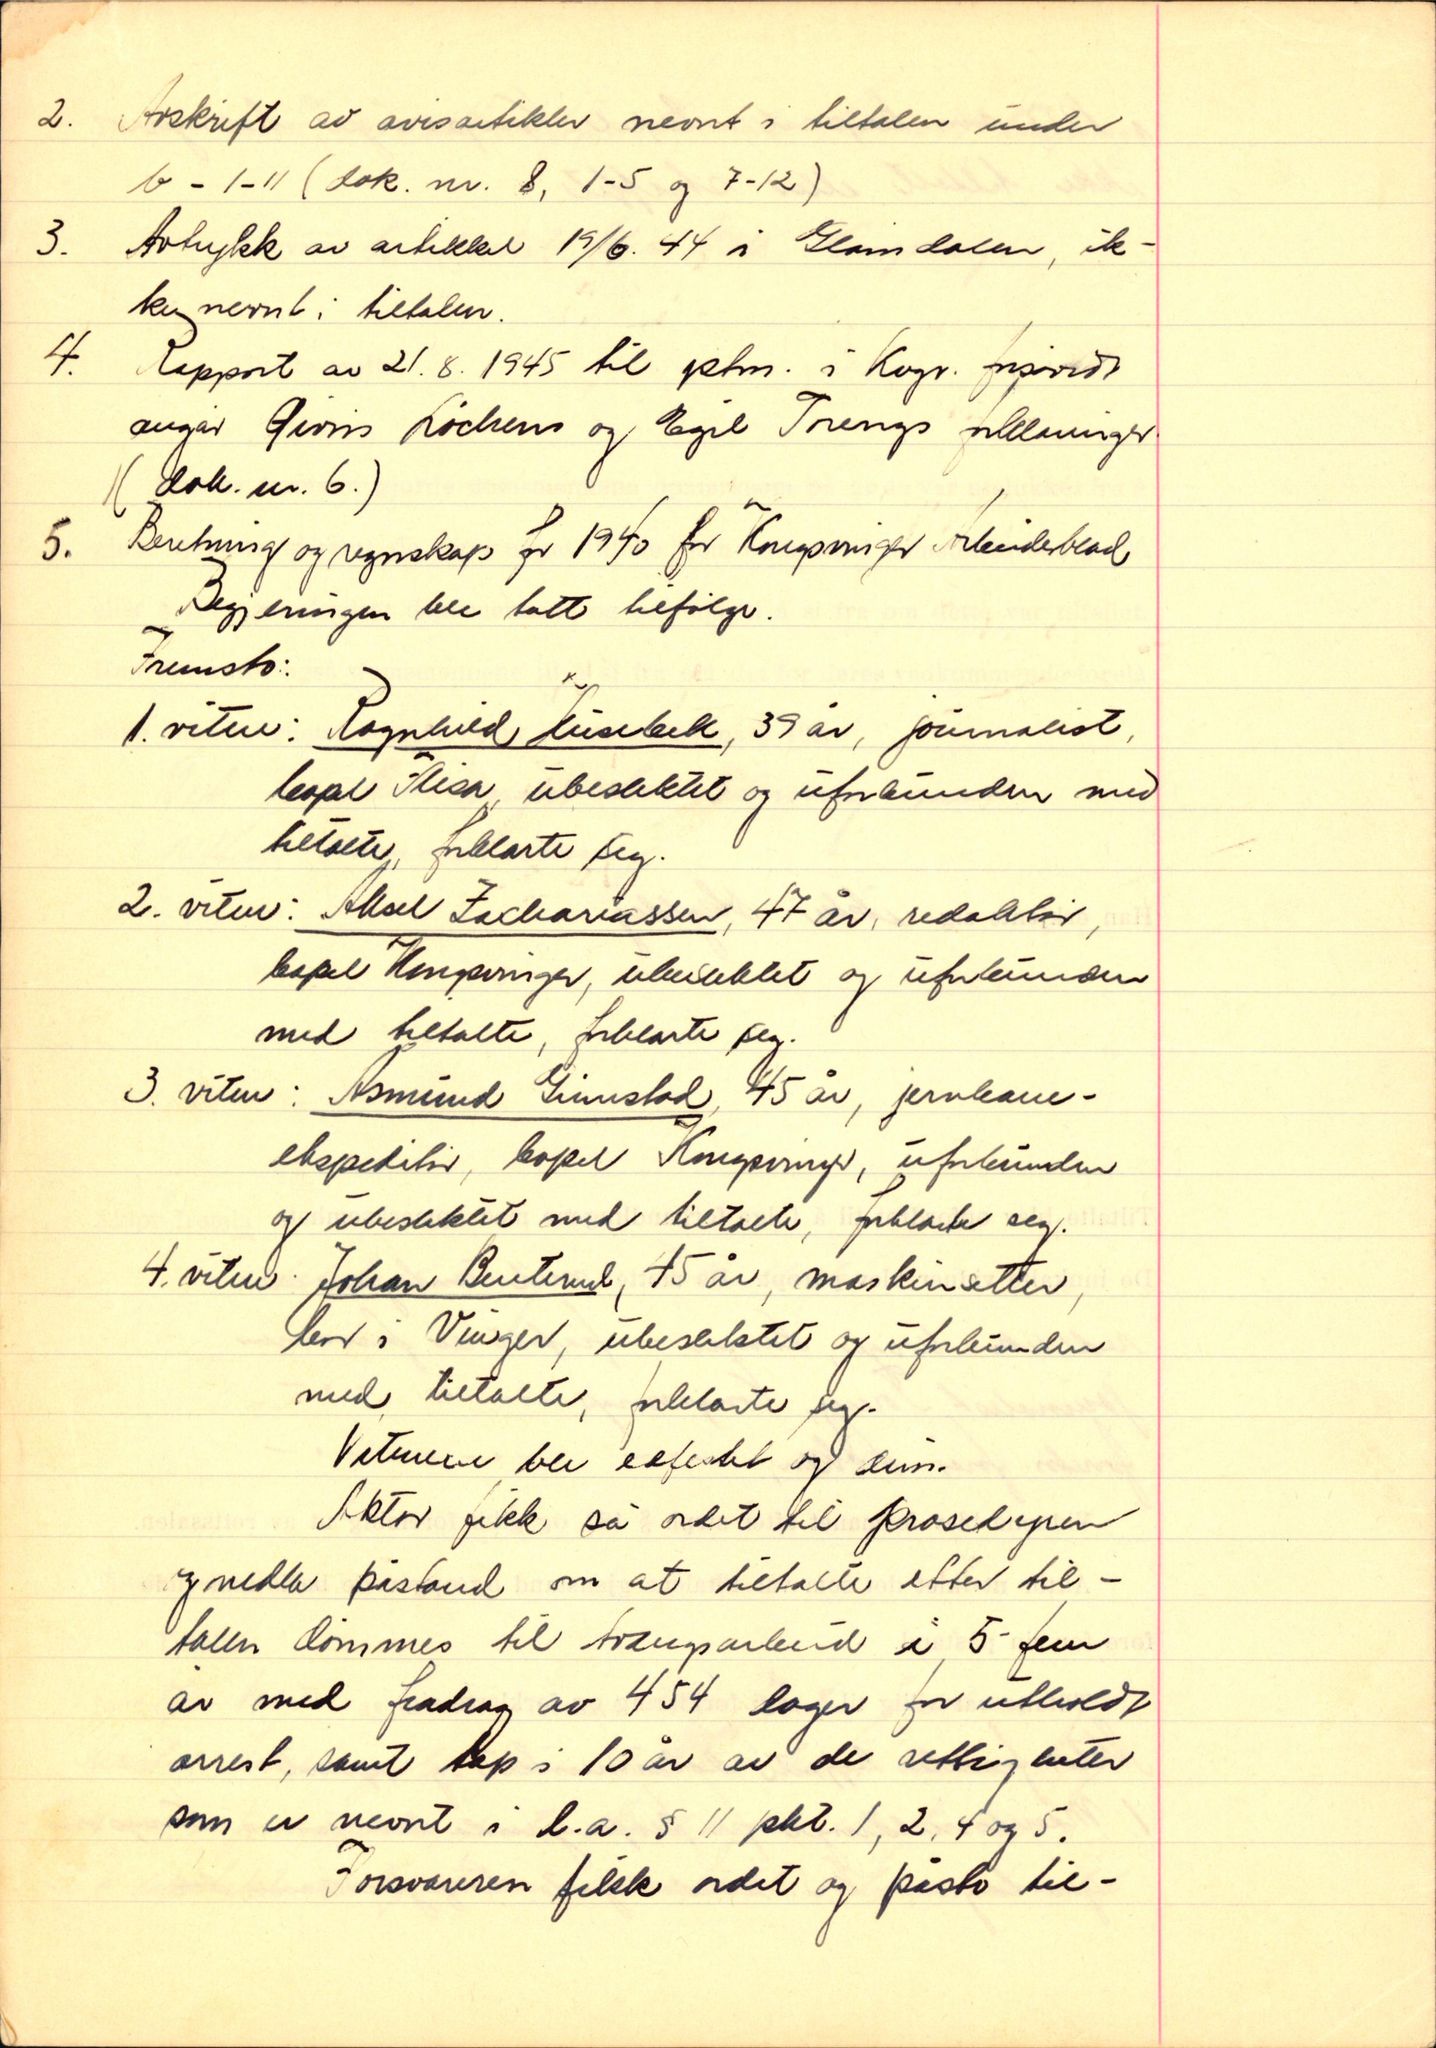 2. Avskrift av avisartikler nevnt i tiltalen under
b - 1-11 (dok. nr. 8, 1-5 og 7-12)
3. Avtrykk av artikkel 19/6. 44 i Glåmdalen, ik-
ke nevnt i tiltalen.
4. Rapport av 21.8.1945 til ptm. i Kogv. forsåvidt
angår Løchens og Egil Torengs forklaringer
(dok. nr. 6.)
5. Beretning og regnskap for 1940 for Kongsvinger Arbeiderblad
Begjeringen ble tatt tilfølge.
Fremsto:
1. vitne: Ragnhild Husebek, 39 år, journalist,
bopel Flisa, ubeslektet og uforbunden med
tiltalte, forklarte seg.
2. vitne: Aksel Zachariassen, 47 år, redaktør,
bopel Kongsvinger, ubeslektet og uforbunden
med tiltalte, forklarte seg.
3. vitne: Asmund Grimstad, 45 år, jernbane-
ekspeditør, bopel Kongsvinger, uforbunden
og ubeslektet med tiltalte, forklarte seg.
4. vitne: Johan Benterud, 45 år, maskinsetter,
bor i Vinger, ubeslektet og uforbunden
med tiltalte, forklarte seg.
Vitnene ble edfestet og dim.
Aktor fikk så ordet til prosedyren
og nedla påstand om at tiltalte etter til-
talen dømmes til tvangsarbeid i 5 fem
år med fradrag av 454 dager for utholdt
arrest, samt tap i 10 år av de rettigheter
som er nevnt i l.a. § 11 pkt. 1, 2, 4 og 5.
Forsvareren fikk ordet og påsto til-